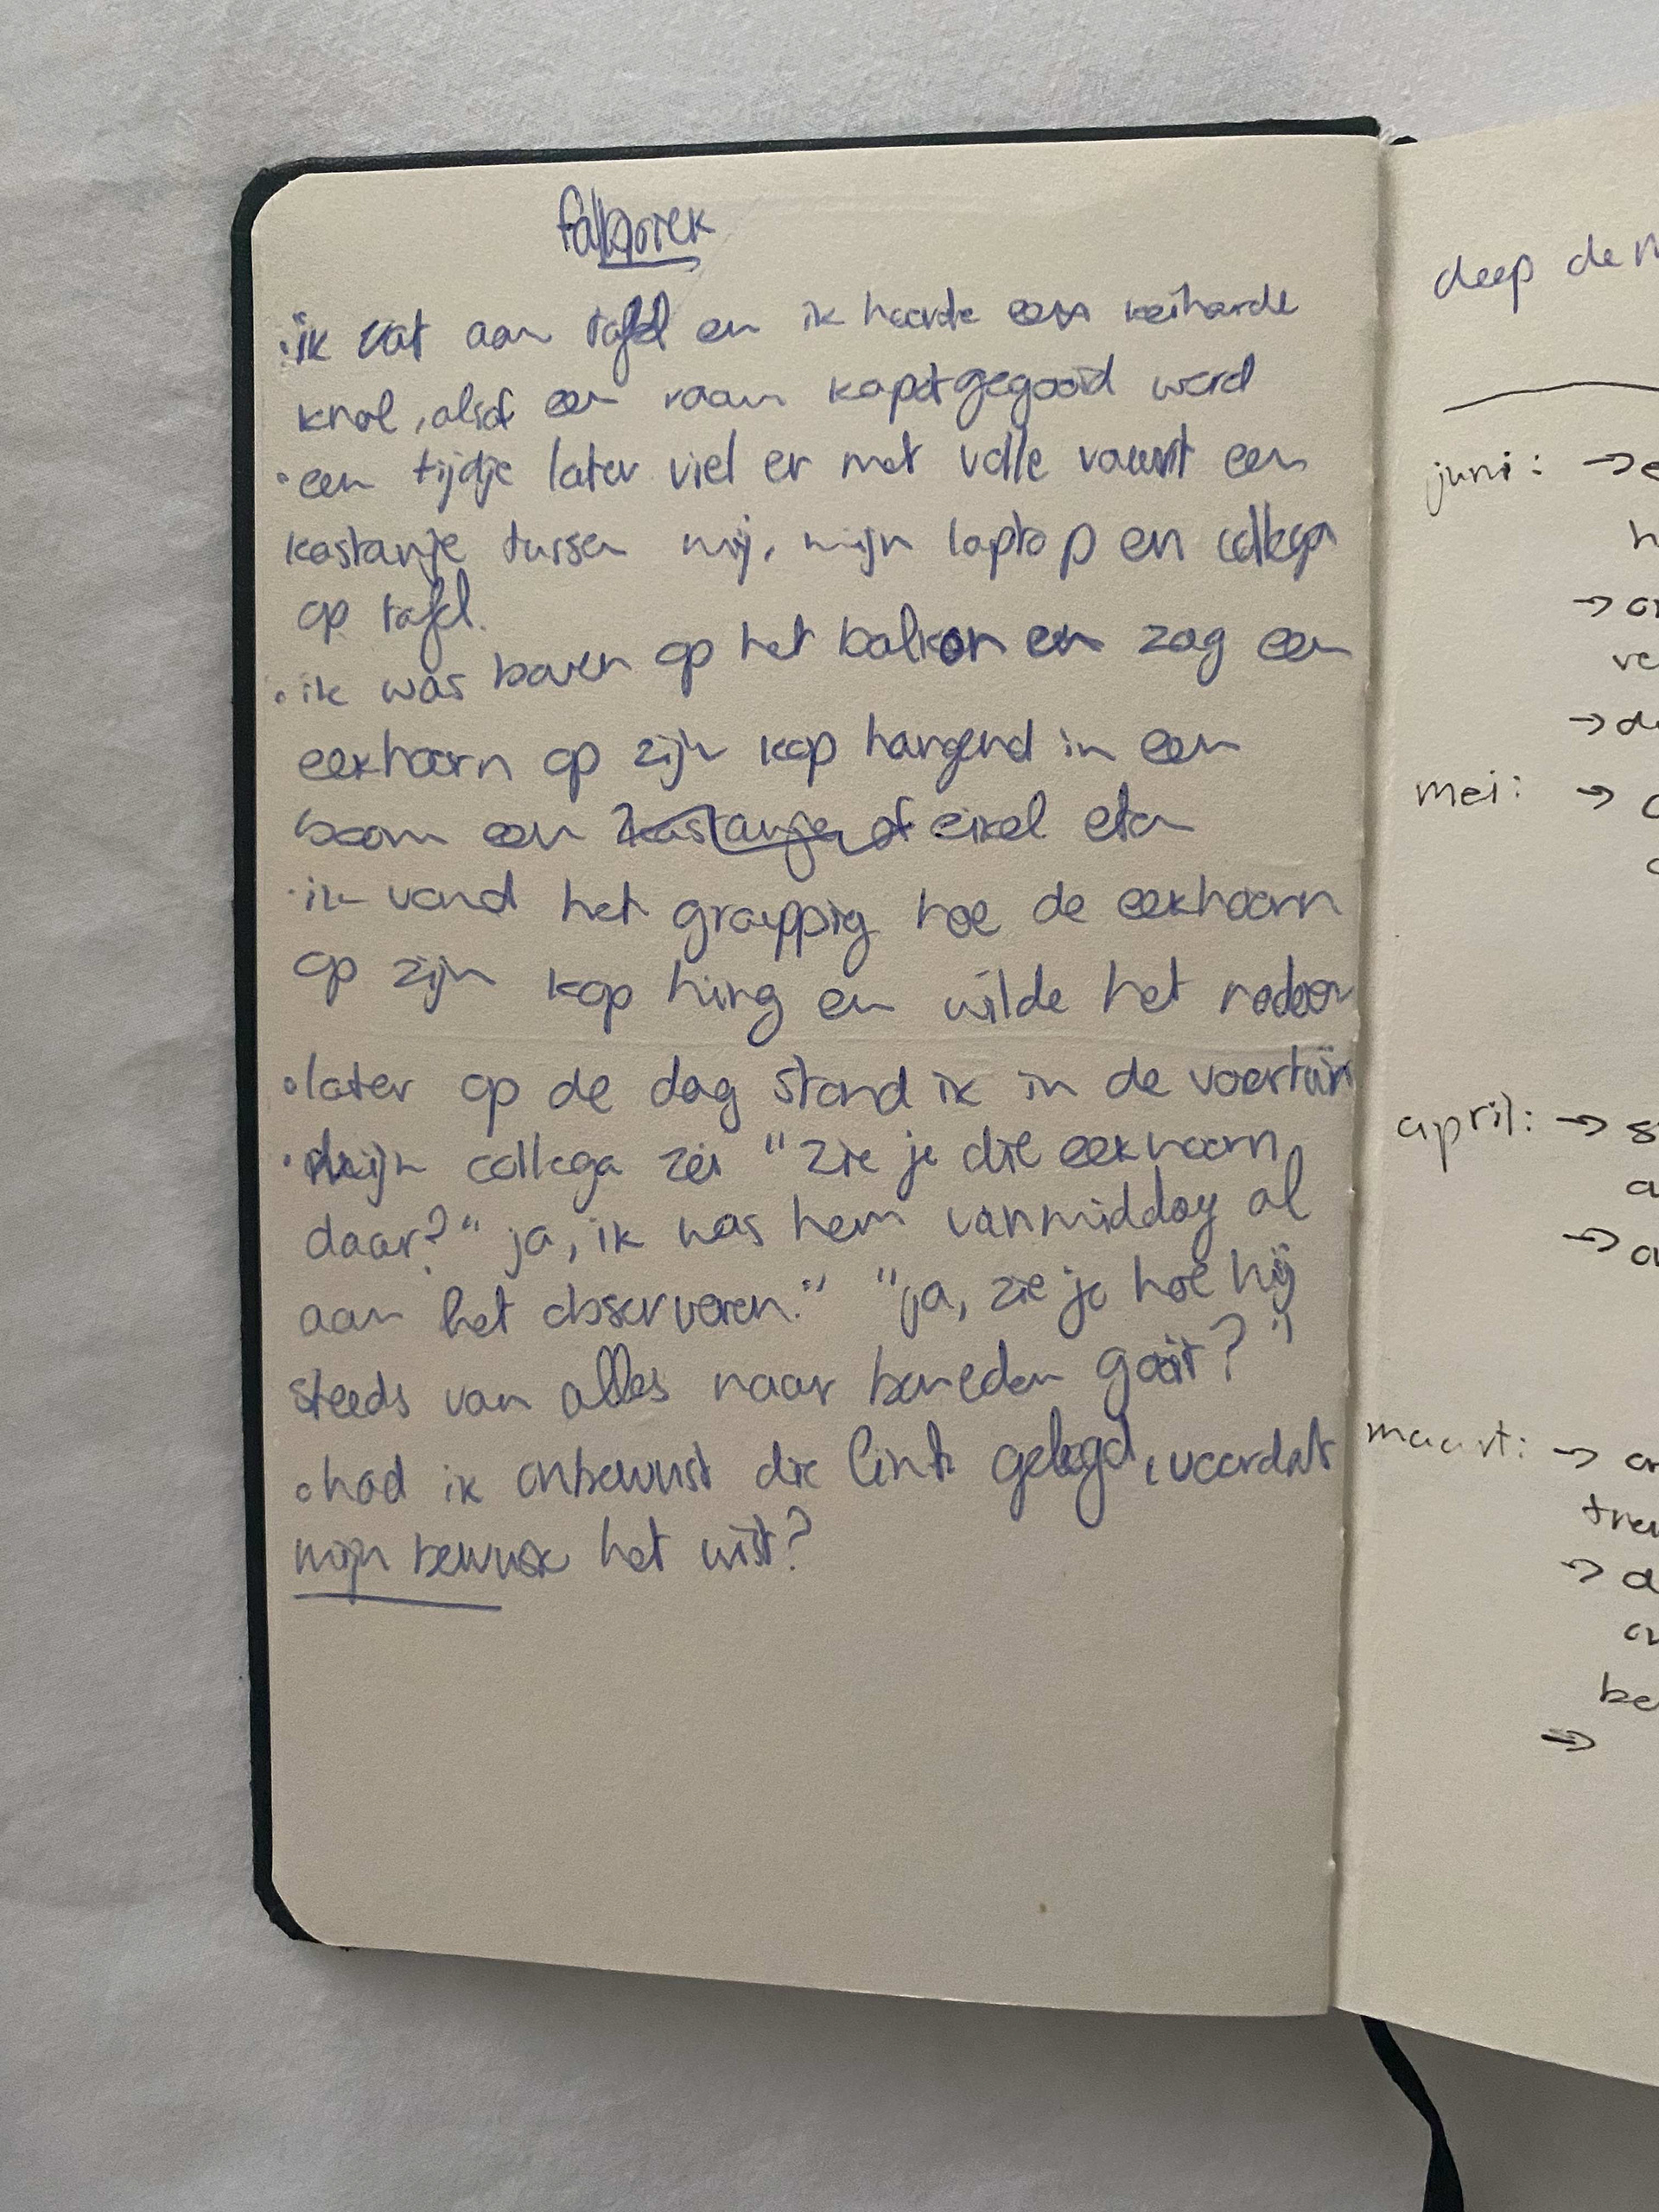 fabriek
• ik zat aan tafel en ik hoorde een keiharde
knal, alsof een raam kapotgegooid werd
• een tijdje later viel er met volle vaart een
kastanje tussen mij, mijn laptop en collega
op tafel.
• ik was boven op het balkon en zag een
eekhoorn op zijn kop hangend in een
boom een kastanje of eikel eten
• ik vond het grappig hoe de eekhoorn
op zijn kop hing en wilde het nadoen
• later op de dag stond ik in de voortuin
• mijn collega zei "zie je die eekhoorn
daar?" ja, ik was hem vanmiddag al
aan het observeren." "ja, zie je hoe hij
steeds van alles naar beneden gooit?"
• had ik onbewust die link gelegd, voordat
mijn bewuste het wist?
deep de
juni: →
→
→ d
mei: →
april: → s
a
→
maart: →
→ d
be
→